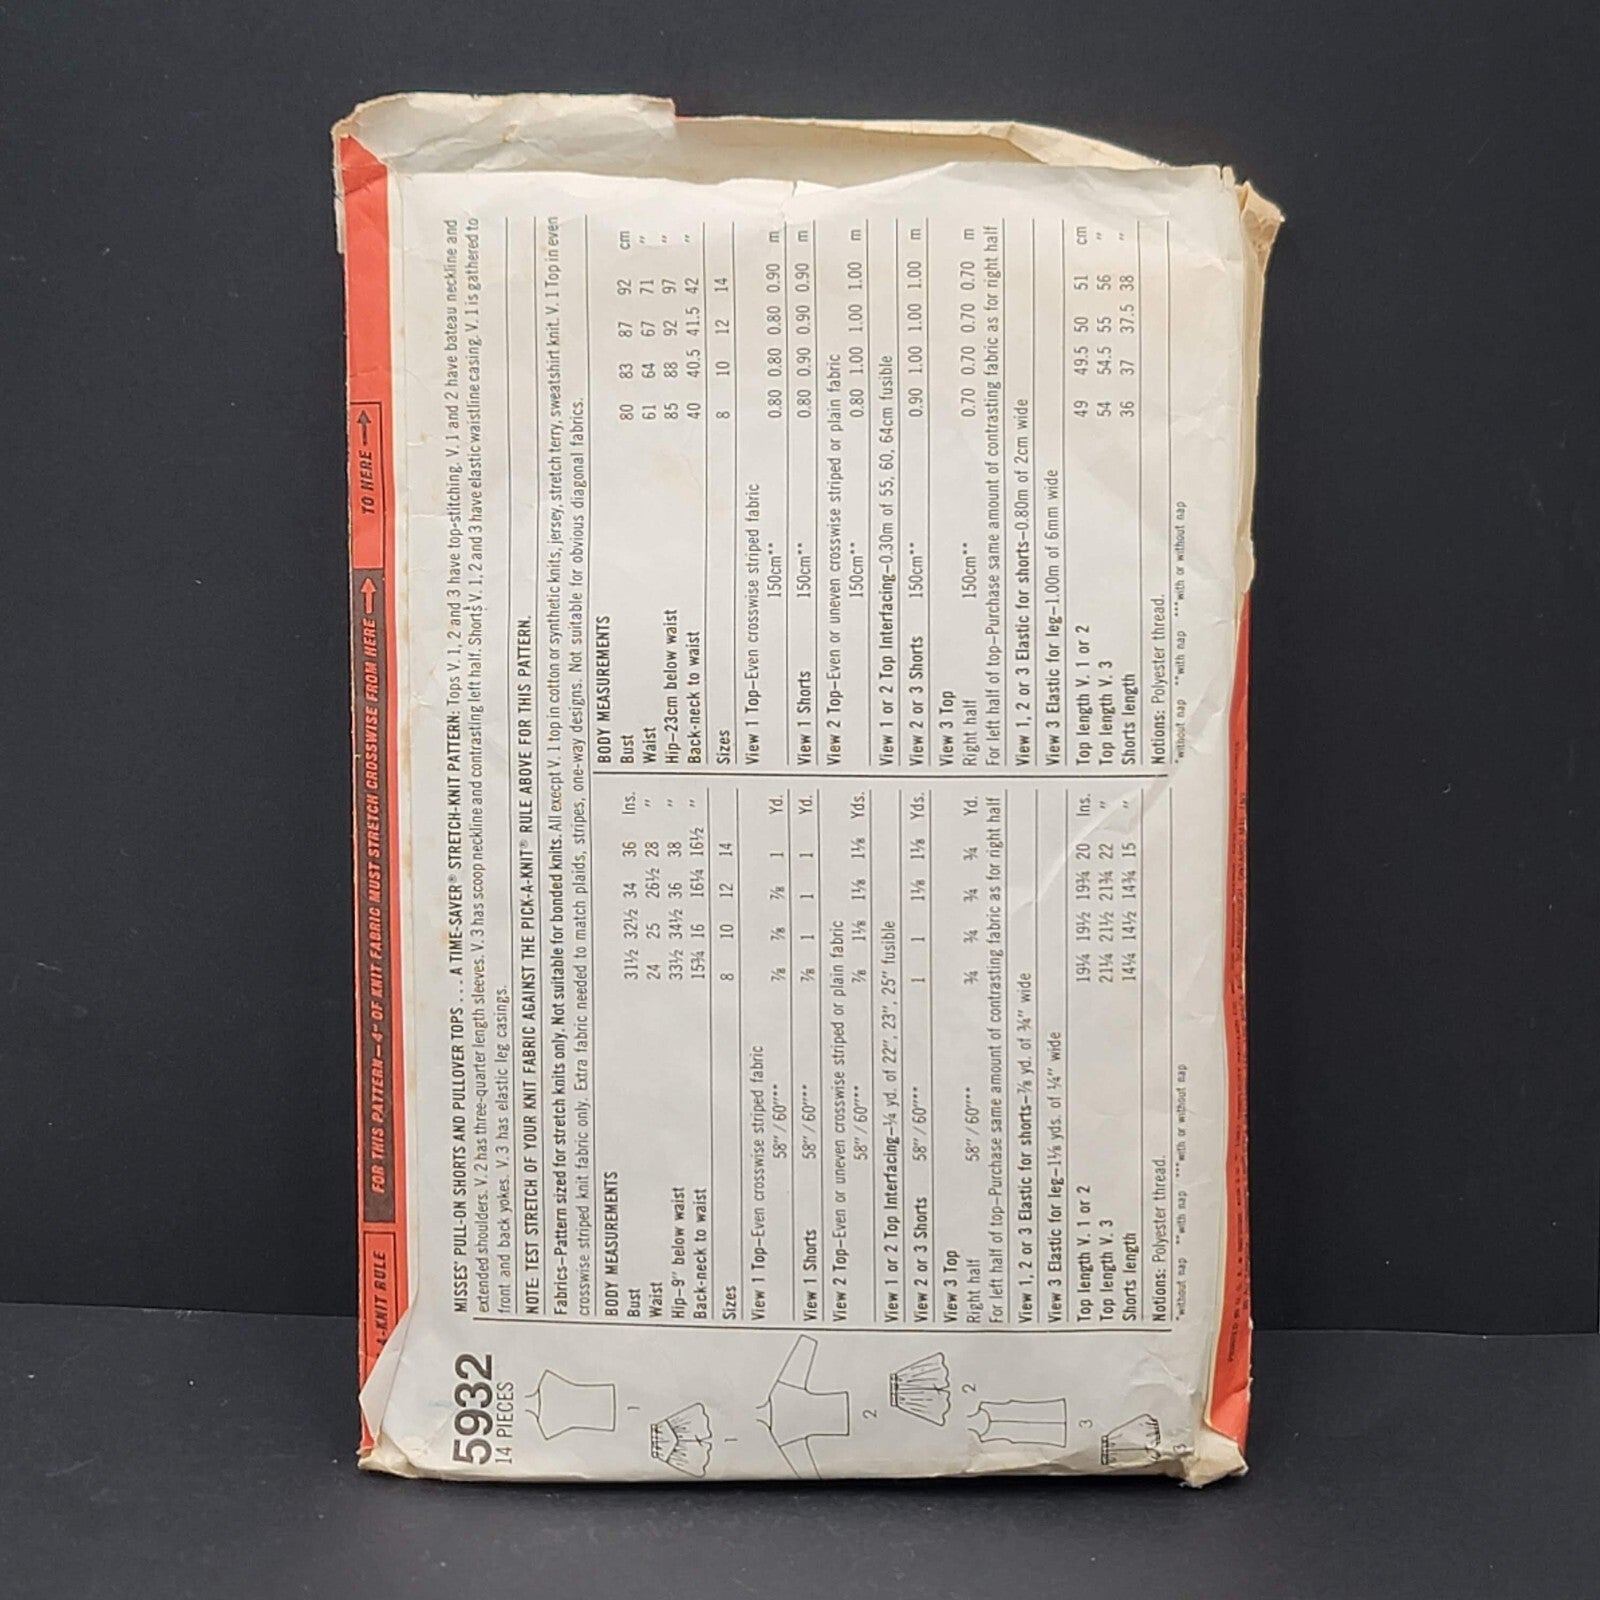 -KNIT RULE FOR THIS PATTERN—4" OF KNIT FABRIC MUST STRETCH CROSSWISE FROM HERE → TO HERE →
5932
14 PIECES
MISSES' PULL-ON SHORTS AND PULLOVER TOPS . . . A TIME-SAVER® STRETCH-KNIT PATTERN: Tops V. 1, 2 and 3 have top-stitching. V. 1 and 2 have bateau neckline and
extended shoulders. V. 2 has three-quarter length sleeves. V. 3 has scoop neckline and contrasting left half. Shorts V. 1, 2 and 3 have elastic waistline casing. V. 1 is gathered to
front and back yokes. V. 3 has elastic leg casings.
NOTE: TEST STRETCH OF YOUR KNIT FABRIC AGAINST THE PICK-A-KNIT® RULE ABOVE FOR THIS PATTERN.
Fabrics—Pattern sized for stretch knits only. Not suitable for bonded knits. All execpt V. 1 top in cotton or synthetic knits, jersey, stretch terry, sweatshirt knit. V. 1 Top in even
crosswise striped knit fabric only. Extra fabric needed to match plaids, stripes, one-way designs. Not suitable for obvious diagonal fabrics.
BODY MEASUREMENTS
Bust 31½ 32½ 34 36 Ins.
Waist 24 25 26½ 28 "
Hip—9" below waist 33½ 34½ 36 38 "
Back-neck to waist 15¾ 16 16¼ 16½ "
Sizes 8 10 12 14
View 1 Top—Even crosswise striped fabric
58"/60"** ⅞ ⅞ ⅞ 1 Yd.
View 1 Shorts 58"/60"** ⅞ 1 1 1 Yd.
View 2 Top—Even or uneven crosswise striped or plain fabric
58"/60"** ⅞ 1⅛ 1⅛ 1⅛ Yds.
View 1 or 2 Top Interfacing—¼ yd. of 22", 23", 25" fusible
View 2 or 3 Shorts 58"/60"** 1 1 1⅛ 1⅛ Yds.
View 3 Top
Right half 58"/60"** ¾ ¾ ¾ ¾ Yd.
For left half of top—Purchase same amount of contrasting fabric as for right half
View 1, 2 or 3 Elastic for shorts—⅞ yd. of ¾" wide
View 3 Elastic for leg—1⅛ yds. of ¼" wide
Top length V. 1 or 2 19¼ 19½ 19¾ 20 Ins.
Top length V. 3 21¼ 21½ 21¾ 22 "
Shorts length 14¼ 14½ 14¾ 15 "
Notions: Polyester thread.
*without nap **with nap ***with or without nap
BODY MEASUREMENTS
Bust 80 83 87 92 cm
Waist 61 64 67 71 "
Hip—23cm below waist 85 88 92 97 "
Back-neck to waist 40 40.5 41.5 42 "
Sizes 8 10 12 14
View 1 Top—Even crosswise striped fabric
150cm** 0.80 0.80 0.80 0.90 m
View 1 Shorts 150cm** 0.80 0.90 0.90 0.90 m
View 2 Top—Even or uneven crosswise striped or plain fabric
150cm** 0.80 1.00 1.00 1.00 m
View 1 or 2 Top Interfacing—0.30m of 55, 60, 64cm fusible
View 2 or 3 Shorts 150cm** 0.90 1.00 1.00 1.00 m
View 3 Top
Right half 150cm** 0.70 0.70 0.70 0.70 m
For left half of top—Purchase same amount of contrasting fabric as for right half
View 1, 2 or 3 Elastic for shorts—0.80m of 2cm wide
View 3 Elastic for leg—1.00m of 6mm wide
Top length V. 1 or 2 49 49.5 50 51 cm
Top length V. 3 54 54.5 55 56 "
Shorts length 36 37 37.5 38 "
Notions: Polyester thread.
*without nap **with nap ***with or without nap
1
1
2
2
3
3